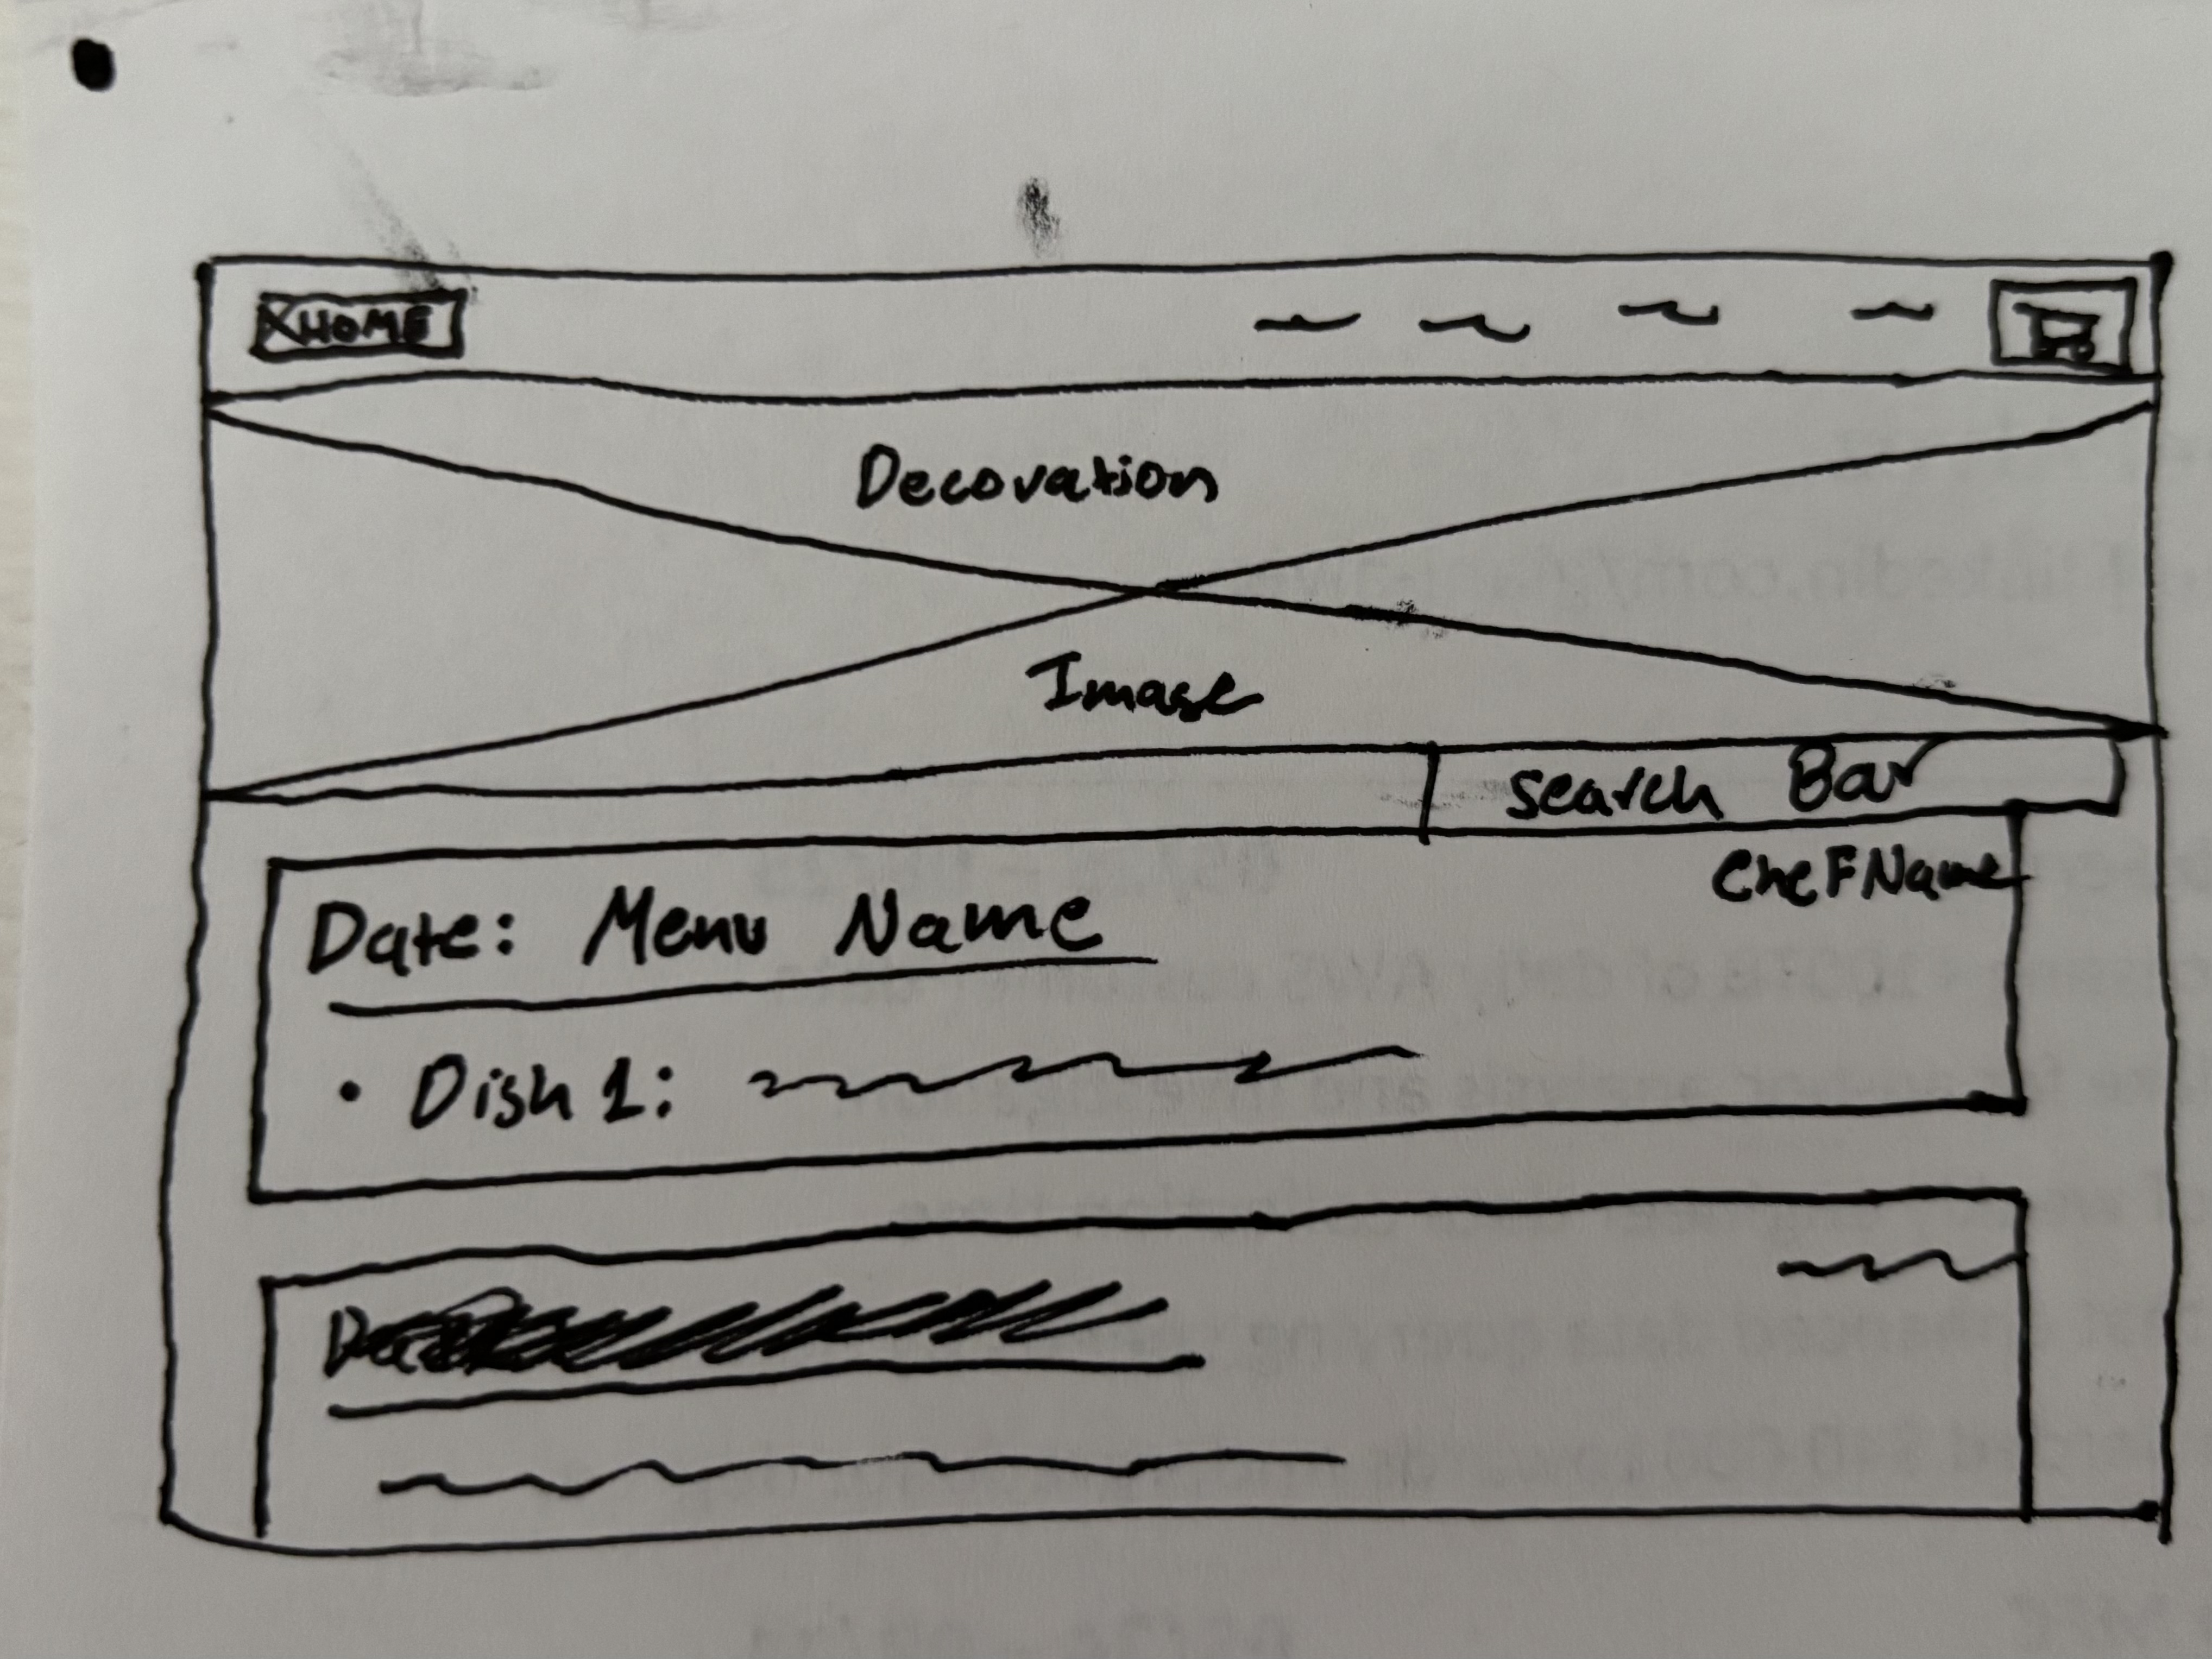 HOME
Decoration
Image
Search Bar
Chef Name
Date: Menu Name
• Dish 1: